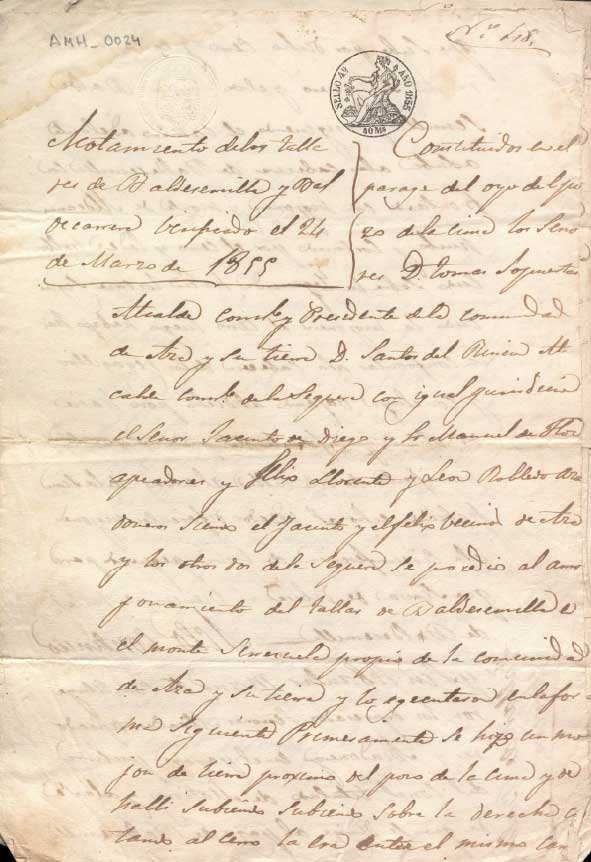 AMH-0024
Nº 418.
SELLO 4º AÑO 1855
40 Ms
Motamiento de los Talla
res de Baldesemilla y Bal
decarrera berificado el 24
de Marzo de 1855
Constituidos en el
parage del oyo del po
zo de la cima los Seño
res D. Tomas
Alcalde Const. y Presidente de la comunidad
de Aza y su tierra D. Santos del Rincon Al
calde Const. de la Sequera con igual jurisdicion
el Señor Jacinto de Diego y Sr Manuel de Flor
apeadores y Felix Llorente y Leon Robledo aza
doneros siendo el Jacinto y el felix becinos de Aza
y los otros dos de la Sequera se procedio al amo
jonamiento del tallar de Baldesemilla
el monte propio de la comunidad
de Aza y su tierra y lo egecutaron en la for
ma siguiente Primeramente se hizo un mo
jon de tierra proximo del pozo de la cima y de
halli subiendo sobre la derecha
al cerro la era entre el mismo